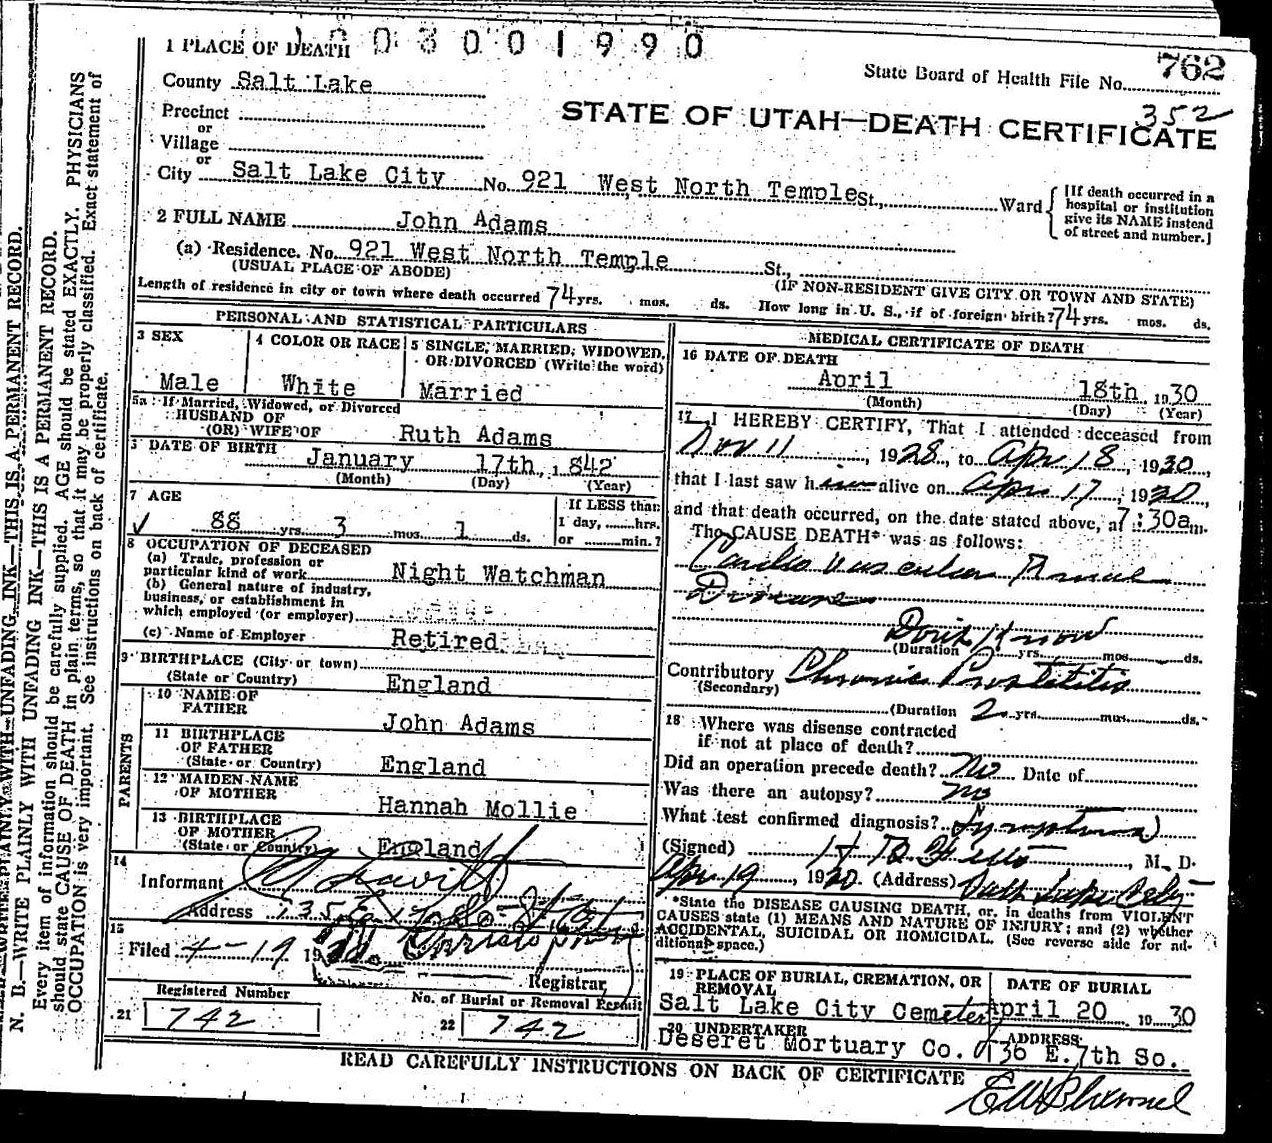 0 3 0 0 1 9 9 0
1 PLACE OF DEATH
County Salt Lake
State Board of Health File No. 762
352
Precinct
or
Village
or
STATE OF UTAH—DEATH CERTIFICATE
City Salt Lake City No. 921 West North Temple St., Ward
[If death occurred in a
hospital or institution
give its NAME instead
of street and number.]
2 FULL NAME John Adams
(a) Residence. No. 921 West North Temple St.,
(USUAL PLACE OF ABODE) (IF NON-RESIDENT GIVE CITY OR TOWN AND STATE)
Length of residence in city or town where death occurred 74 yrs. mos. ds. How long in U. S., if of foreign birth? 74 yrs. mos. ds.
PERSONAL AND STATISTICAL PARTICULARS
3 SEX
Male
4 COLOR OR RACE
White
5 SINGLE, MARRIED, WIDOWED,
OR DIVORCED (Write the word)
Married
5a If Married, Widowed, or Divorced
HUSBAND OF
(OR) WIFE OF Ruth Adams
DATE OF BIRTH
January 17th, 1842
(Month) (Day) (Year)
7 AGE
88 yrs. 3 mos. 1 ds.
If LESS than
1 day, hrs.
or min.?
8 OCCUPATION OF DECEASED
(a) Trade, profession or
particular kind of work Night Watchman
(b) General nature of industry,
business, or establishment in
which employed (or employer)
(c) Name of Employer Retired
9 BIRTHPLACE (City or town)
(State or Country) England
PARENTS
10 NAME OF
FATHER John Adams
11 BIRTHPLACE
OF FATHER
(State or Country) England
12 MAIDEN NAME
OF MOTHER Hannah Mollie
13 BIRTHPLACE
OF MOTHER
(State or Country) England
14
Informant
Address
15
Filed 4-19 19
Registrar
Registered Number
21 742
No. of Burial or Removal Permit
22 742
MEDICAL CERTIFICATE OF DEATH
16 DATE OF DEATH
April 18th, 1930
(Month) (Day) (Year)
17 I HEREBY CERTIFY, That I attended deceased from
Nov 11, 1928, to Apr 18, 1930,
that I last saw him alive on Apr 17, 1930,
and that death occurred, on the date stated above, at 7:30a m.
The CAUSE DEATH* was as follows:
Cardio Vascular Renal
Disease
Don't Know
(Duration yrs. mos. ds.
Contributory Chronic Prostatitis
(Secondary)
(Duration 2 yrs. mos. ds.
18 Where was disease contracted
if not at place of death?
Did an operation precede death? No Date of
Was there an autopsy? no
What test confirmed diagnosis? Symptoms
(Signed) M. D.
Apr 19, 1930. (Address) Salt Lake City
*State the DISEASE CAUSING DEATH, or, in deaths from VIOLENT
CAUSES state (1) MEANS AND NATURE OF INJURY; and (2) whether
ACCIDENTAL, SUICIDAL OR HOMICIDAL. (See reverse side for ad-
ditional space.)
19 PLACE OF BURIAL, CREMATION, OR
REMOVAL
Salt Lake City Cemetery
DATE OF BURIAL
April 20 1930
20 UNDERTAKER
Deseret Mortuary Co.
ADDRESS
36 E. 7th So.
READ CAREFULLY INSTRUCTIONS ON BACK OF CERTIFICATE
N. B.—WRITE PLAINLY WITH UNFADING INK—THIS IS A PERMANENT RECORD.
Every item of information should be carefully supplied. AGE should be stated EXACTLY. PHYSICIANS
should state CAUSE OF DEATH in plain terms, so that it may be properly classified. Exact statement of
OCCUPATION is very important. See instructions on back of certificate.